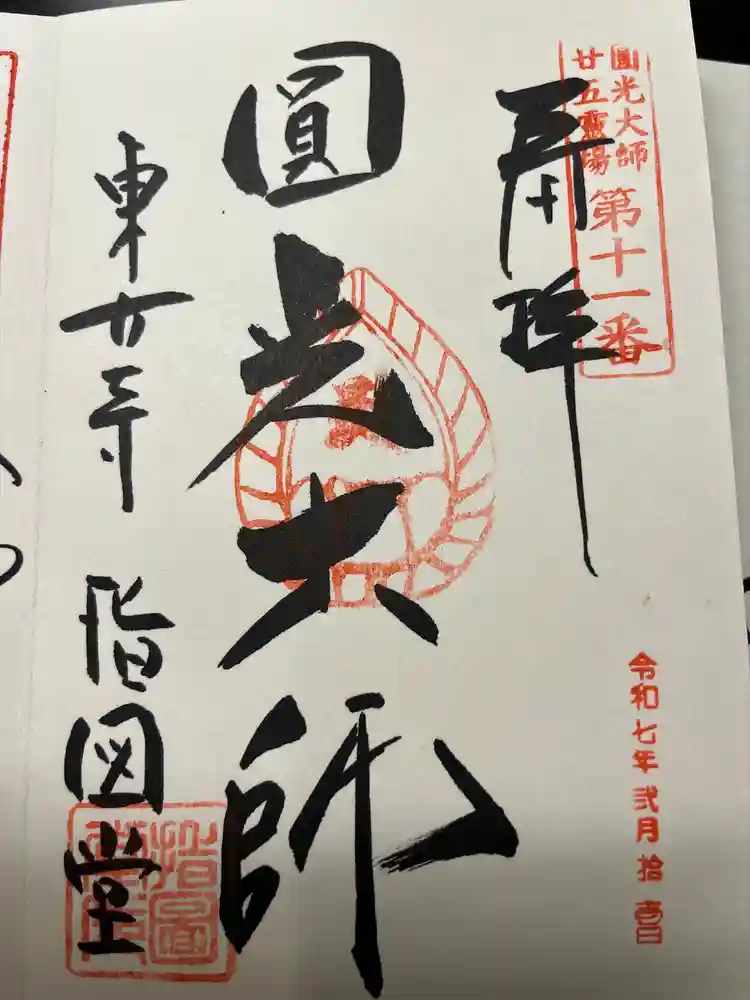 圓光大師
廿五靈場
第十一番
奉拝
令和七年 弐月 拾壹日
圓光大師
東大寺 指図堂